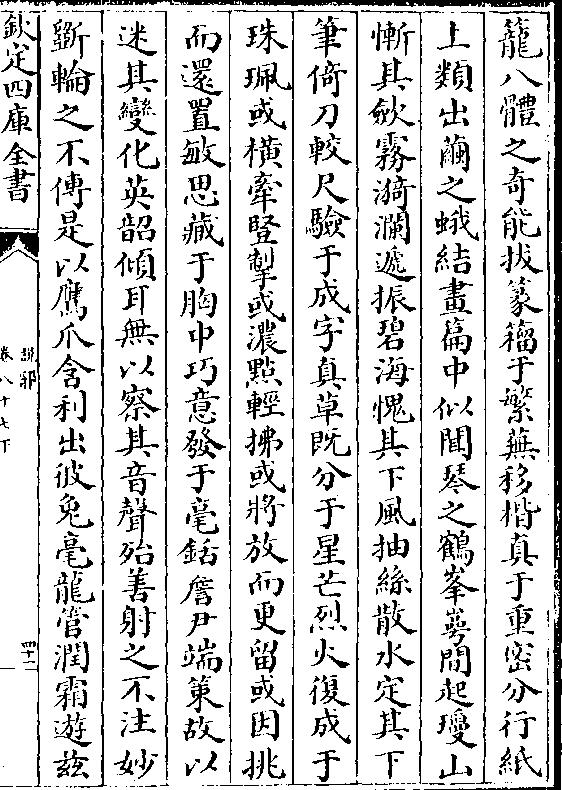 籠八體之奇能拔篆籕于繁蕪移楷真于重密分行紙
上類出繭之蛾結畫篇中似聞琴之鶴峯萼間起瓊山
慚其歛霧漪瀾遞振碧海愧其下風抽絲散水定其下
筆倚刀較尺驗于成字真草旣分于星芒烈火復成于
珠珮或横牽竪掣或濃㸃輕拂或將放而更留或因挑
而還置敏思藏于胸中巧意發于毫銛詹尹端策故以
迷其變化英韶傾耳無以察其音聲殆善射之不注妙
斵輪之不傳是以鷹爪含利出彼兔毫龍管潤霜遊兹
欽定四庫全書
説郛
卷八十七下
四十二